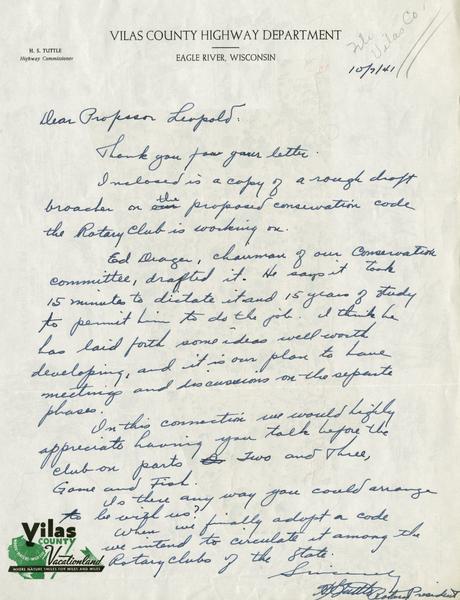 VILAS COUNTY HIGHWAY DEPARTMENT
H. S. TUTTLE
Highway Commissioner
EAGLE RIVER, WISCONSIN
File
Vilas Co
10/7/41
Dear Professor Leopold:
Thank you for your letter.
Inclosed is a copy of a rough draft
broacher on the proposed conservation code
the Rotary Club is working on.
Ed Drager, chairman of our Conservation
committee, drafted it. He says it took
15 minutes to dictate it and 15 years of study
to permit him to do the job. I think he
has laid forth some ideas well worth
developing, and it is our plan to have
meetings and discussions on the separate
phases.
In this connection we would highly
appreciate having you talk before the
club on parts Two and Three,
Game and Fish.
Is there any way you could arrange
to be with us?
When we finally adopt a code
we intend to circulate it among the
Rotary Clubs of the State.
Sincerely
HS Tuttle Rotary President
Vilas
COUNTY
Vacationland
WHERE NATURE SMILES FOR MILES AND MILES